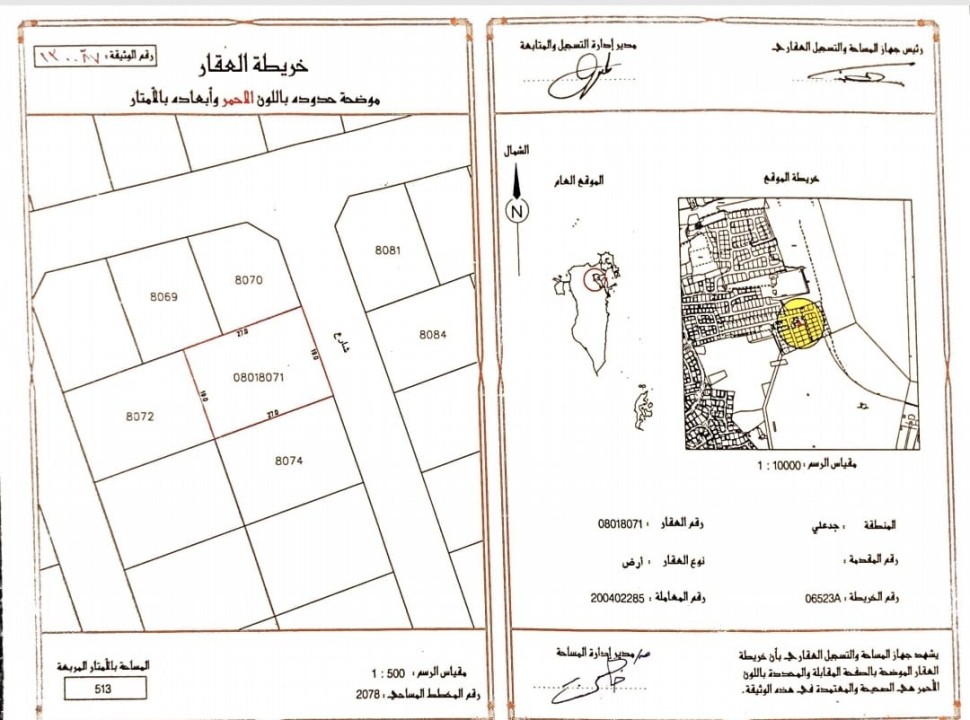 رئيس جهاز المساحة والتسجيل العقاري
مدير إدارة التسجيل والمتابعة
الشمال
N
الموقع العام
خريطة الموقع
مقياس الرسم : 10000 : 1
المنطقة : جدعلي
رقم العقار : 08018071
رقم المقدمة :
نوع العقار : ارض
رقم الخريطة : 06523A
رقم المعاملة : 200402285
يشهد جهاز المساحة والتسجيل العقاري بأن خريطة
العقار الموضحة بالصفحة المقابلة والمحددة باللون
الأحمر هي الصحيحة والمعتمدة في هذه الوثيقة.
مدير إدارة المساحة
رقم الوثيقة :
خريطة العقار
موضحة حدوده باللون الاحمر وأبعاده بالأمتار
8081
8070
8069
27.0
شارع
19.0
8084
08018071
19.0
27.0
8072
8074
مقياس الرسم : 500 : 1
رقم المخطط المساحي : 2078
المساحة بالأمتار المربعة
513